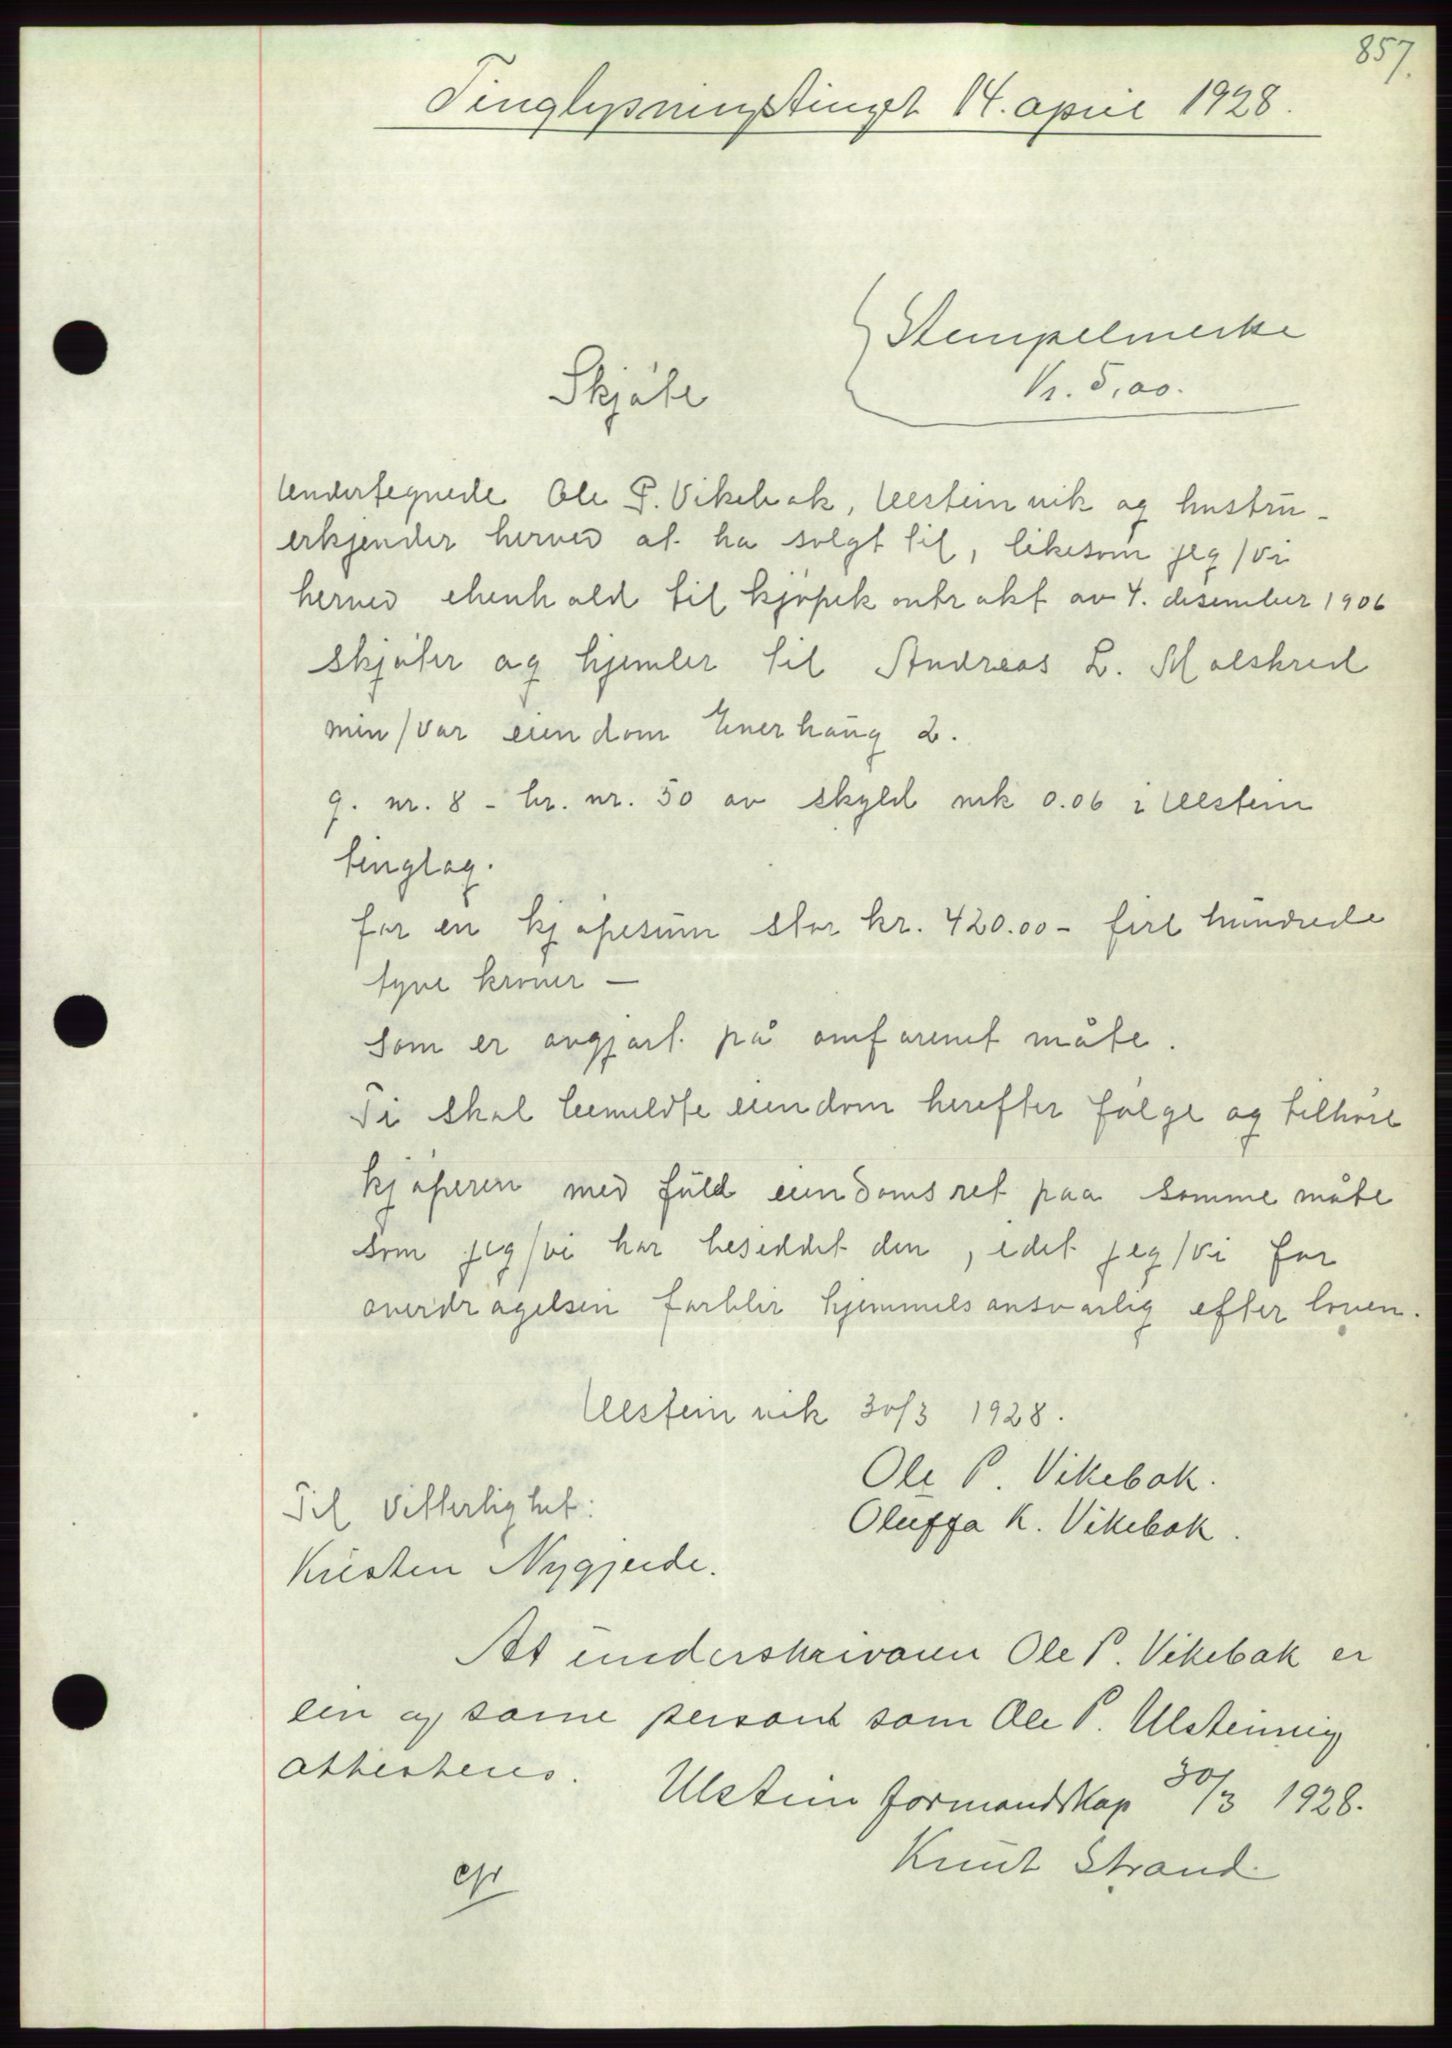 857.
Tinglysningstinget 14. april 1928.
Stempelmerke
Kr. 5,00.
Skjøte
Undertegnede Ole P. Vikebak, Ulsteinvik og hustru -
erkjender herved at ha solgt til, likesom jeg/vi
herved ehenhold til kjøpekontrakt av 4. desember 1906
skjøter og hjemler til Andreas L. Molskred
min/vår eiendom Enerhaug 2.
g. nr. 8 - br. nr. 50 av skyld mk 0.06 i Ulstein
tinglag.
for en kjøpesum stor kr. 420.00 - fire hundrede
tyve kroner -
som er avgjort på omforenet måte.
Ti skal bemeldte eiendom herefter følge og tilhøre
kjøperen med fuld eiendomsret paa samme måte
som jeg/vi har besiddet den, idet jeg/vi for
overdragelsen forblir hjemmelsansvarlig efter loven.
Ulsteinvik 30/3 1928.
Ole P. Vikebak.
Til Vitterlighet:
Oluffa K. Vikebak.
Kristen Nygjerde.
At underskrivaren Ole P. Vikebak er
ein og same person som Ole P. Ulsteinvig
attesteres.
Ulstein formandskap 30/3 1928.
Knut Strand